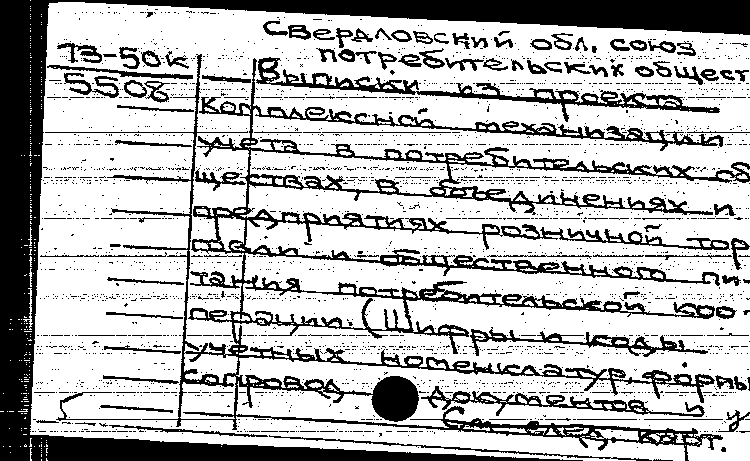 Свердловский обл. союз
потребительских общест
73-50к
5508
Выписки из проекта
комплексной механизации
учета в потребительских об
ществах, в объединениях и
предприятиях розничной тор
говли и общественного пи-
тания потребительской коо-
перации. (Шифры и коды
учетных номенклатур, формы
сопровод документов и у
См. след. карт.